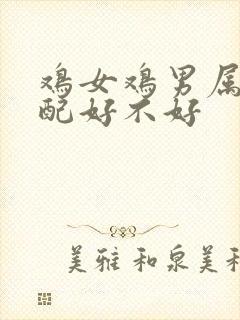 鸡女鸡男属
配好不好
美雅和泉美和